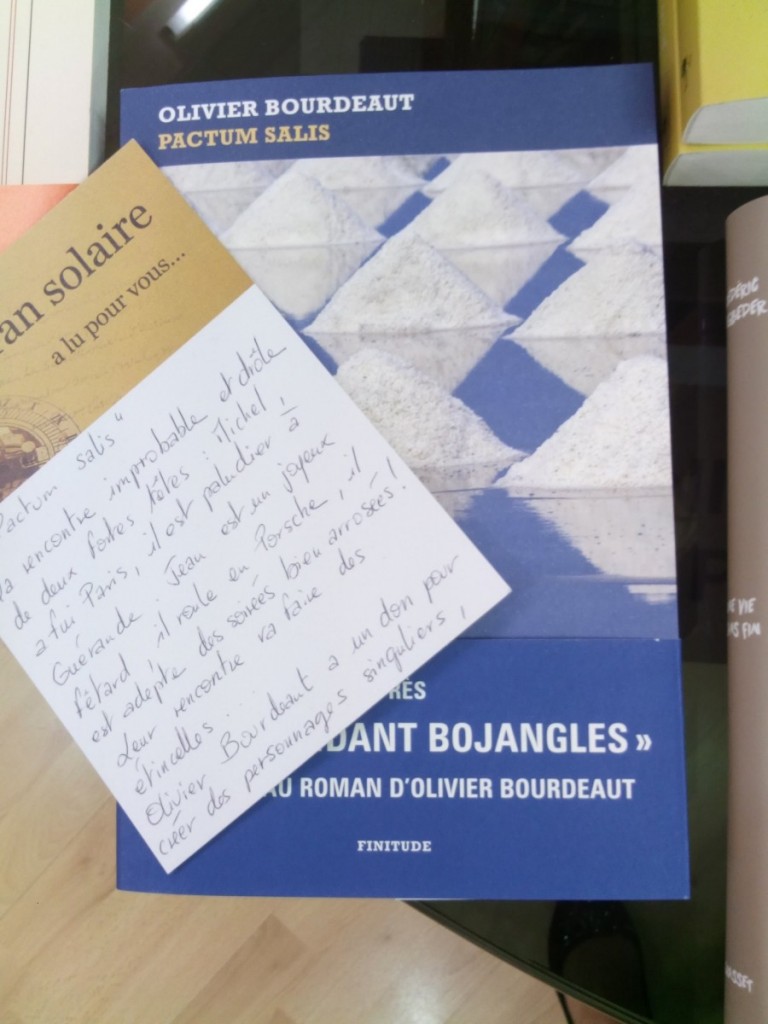 OLIVIER BOURDEAUT
PACTUM SALIS
an solaire
a lu pour vous...
Pactum Salis"
la rencontre improbable et drôle
de deux fortes têtes : Michel,
a fui Paris, il est paludier à
Guérande. Jean est un joyeux
fêtard, il roule en Porsche, il
est adepte des soirées bien arrosées!
Leur rencontre va faire des
étincelles...
Olivier Bourdeaut a un don pour
créer des personnages singuliers,
RÈS
DANT BOJANGLES »
AU ROMAN D'OLIVIER BOURDEAUT
FINITUDE
DÉRIC
GBEDER
NE VIE
NS FIN
ASSET